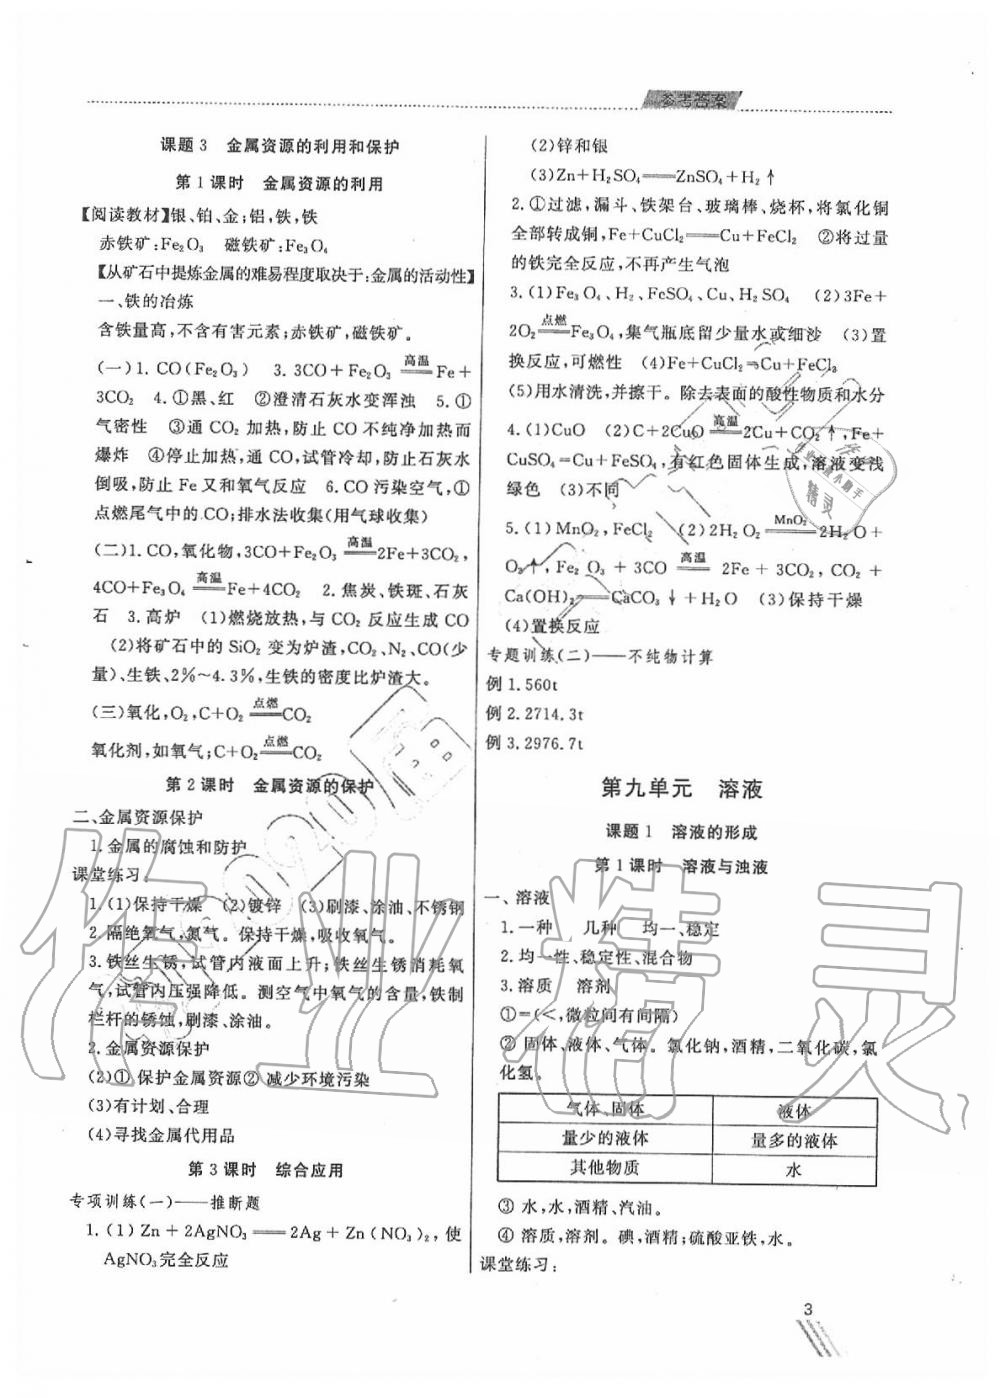 参考答案
课题3 金属资源的利用和保护
第1课时 金属资源的利用
【阅读教材】银、铂、金;铝,铁,铁
赤铁矿:Fe₂O₃ 磁铁矿:Fe₃O₄
【从矿石中提炼金属的难易程度取决于:金属的活动性】
一、铁的冶炼
含铁量高,不含有害元素;赤铁矿,磁铁矿。
(一)1. CO(Fe₂O₃) 3. 3CO+Fe₂O₃ 高温 Fe+
3CO₂ 4. ①黑、红 ②澄清石灰水变浑浊 5. ①
气密性 ③通 CO₂ 加热,防止 CO 不纯净加热而
爆炸 ④停止加热,通 CO,试管冷却,防止石灰水
倒吸,防止 Fe 又和氧气反应 6. CO 污染空气,①
点燃尾气中的 CO;排水法收集(用气球收集)
(二)1. CO,氧化物,3CO+Fe₂O₃ 高温 2Fe+3CO₂,
4CO+Fe₃O₄ 高温 Fe+4CO₂ 2. 焦炭、铁斑、石灰
石 3. 高炉 (1)燃烧放热,与 CO₂ 反应生成 CO
(2)将矿石中的 SiO₂ 变为炉渣,CO₂、N₂、CO(少
量)、生铁、2%～4.3%,生铁的密度比炉渣大。
(三)氧化,O₂,C+O₂ 点燃 CO₂
氧化剂,如氧气;C+O₂ 点燃 CO₂
第2课时 金属资源的保护
二、金属资源保护
1. 金属的腐蚀和防护
课堂练习:
1. (1)保持干燥 (2)镀锌 (3)刷漆、涂油、不锈钢
2. 隔绝氧气,氮气。保持干燥,吸收氧气。
3. 铁丝生锈,试管内液面上升;铁丝生锈消耗氧
气,试管内压强降低。测空气中氧气的含量,铁制
栏杆的锈蚀,刷漆、涂油。
2. 金属资源保护
(2)① 保护金属资源② 减少环境污染
(3)有计划、合理
(4)寻找金属代用品
第3课时 综合应用
专项训练(一)——推断题
1. (1) Zn + 2AgNO₃ ══ 2Ag + Zn(NO₃)₂, 使
AgNO₃完全反应
(2)锌和银
(3)Zn+H₂SO₄══ZnSO₄+H₂↑
2. ①过滤,漏斗、铁架台、玻璃棒、烧杯,将氯化铜
全部转成铜,Fe+CuCl₂══Cu+FeCl₂ ②将过量
的铁完全反应,不再产生气泡
3. (1)Fe₃O₄、H₂、FeSO₄、Cu、H₂SO₄ (2)3Fe+
2O₂ 点燃 Fe₃O₄,集气瓶底留少量水或细沙 (3)置
换反应,可燃性 (4)Fe+CuCl₂══Cu+FeCl₃
(5)用水清洗,并擦干。除去表面的酸性物质和水分
4. (1)CuO (2)C+2CuO 高温 2Cu+CO₂↑,Fe+
CuSO₄══Cu+FeSO₄,有红色固体生成,溶液变浅
绿色 (3)不同
5. (1)MnO₂,FeCl₂ (2)2H₂O₂ MnO₂ 2H₂O+
O₂↑,Fe₂O₃+3CO 高温 2Fe+3CO₂,CO₂+
Ca(OH)₂══CaCO₃↓+H₂O (3)保持干燥
(4)置换反应
专题训练(二)——不纯物计算
例1.560t
例2.2714.3t
例3.2976.7t
第九单元 溶液
课题1 溶液的形成
第1课时 溶液与浊液
一、溶液
1. 一种 几种 均一、稳定
2. 均一性、稳定性、混合物
3. 溶质 溶剂
①=(<,微粒间有间隔)
② 固体、液体、气体。氯化钠,酒精,二氧化碳,氯
化氢。
气体、固体 液体
量少的液体 量多的液体
其他物质 水
③ 水,水,酒精、汽油。
④ 溶质,溶剂。碘,酒精;硫酸亚铁,水。
课堂练习:
3
作业精灵